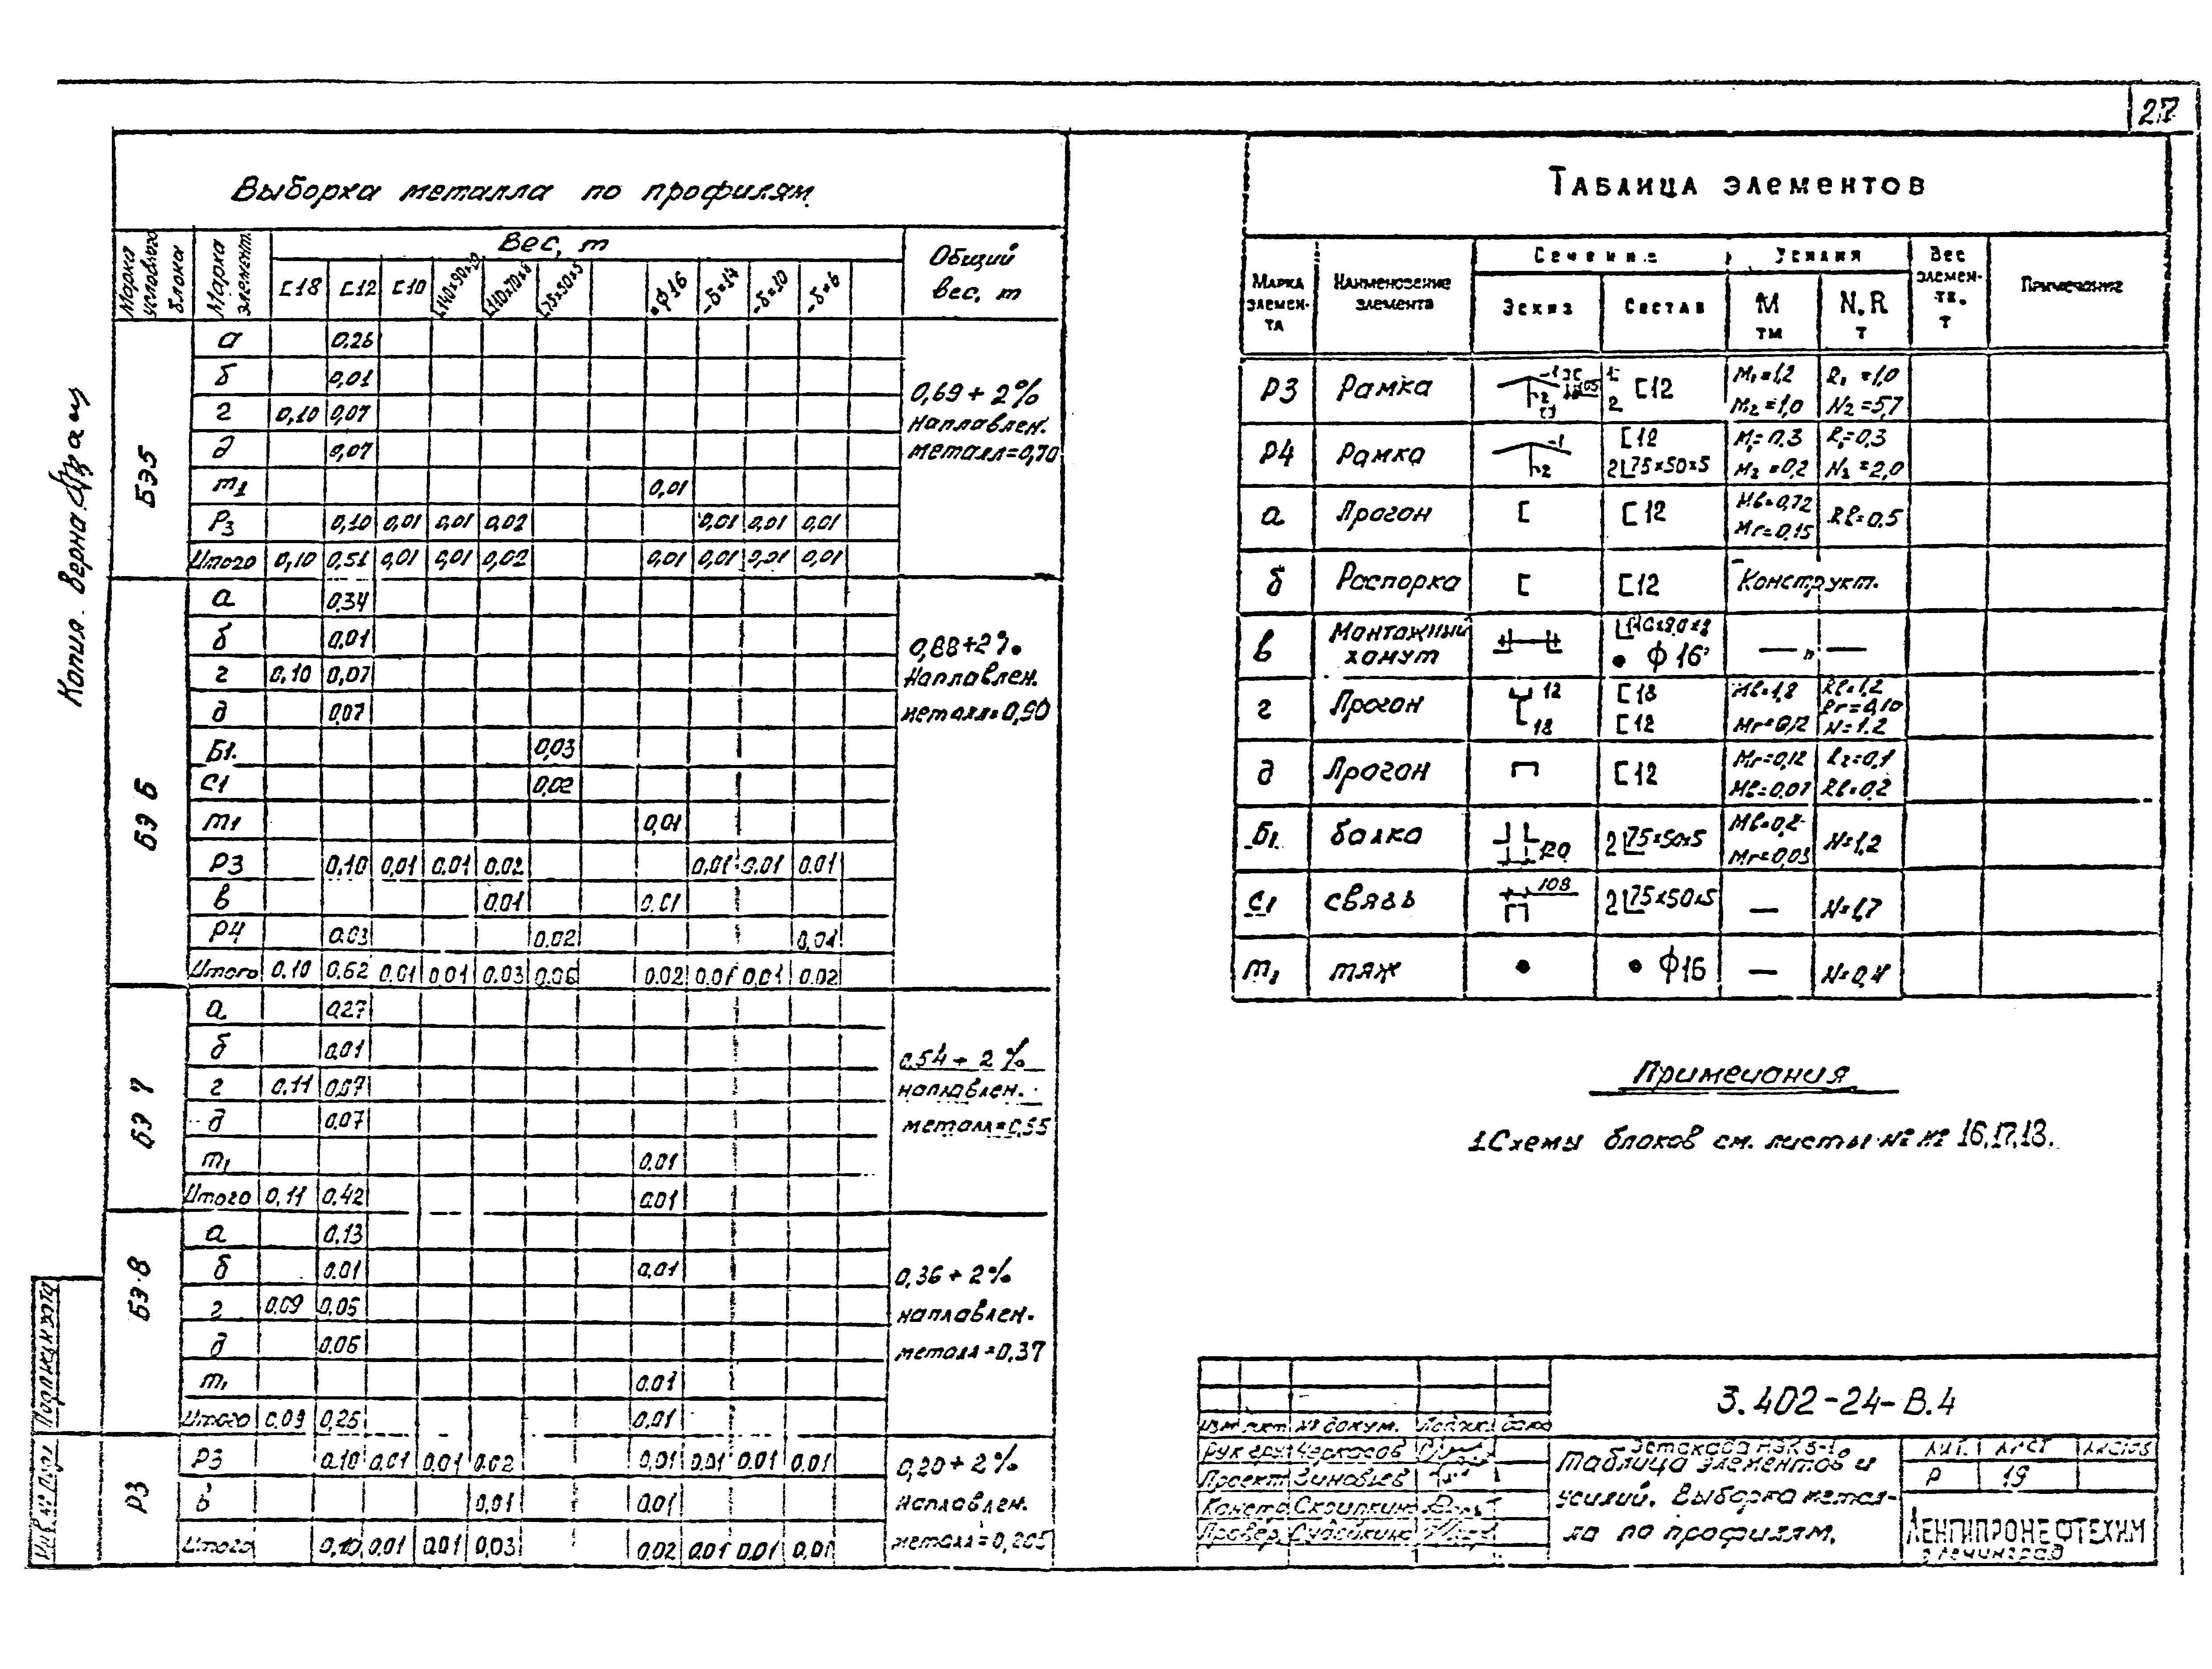 27
Копия верна
Выборка металла по профилям
Марка условного блока | Марка элемент. | Вес, т | Общий вес, т
[18 | [12 | [10 | L140×90×10 | L110×70×8 | L75×50×5 | •ϕ16 | -δ=14 | -δ=10 | -δ=6
БЭ5
а 0,26
б 0,01
г 0,10 0,07
д 0,07
т1 0,01
Р3 0,10 0,01 0,01 0,02 0,01 0,01 0,01
Итого 0,10 0,51 0,01 0,01 0,02 0,01 0,01 0,01 0,01
0,69 + 2%
наплавлен.
металл=0,70
БЭ 6
а 0,34
б 0,01
г 0,10 0,07
д 0,07
Б1. 0,03
С1 0,02
т1 0,01
Р3 0,10 0,01 0,01 0,02 0,01 0,01 0,01
в 0,01 0,01
Р4 0,03 0,02 0,01
Итого 0,10 0,62 0,01 0,01 0,03 0,06 0,02 0,01 0,01 0,02
0,88+2%
наплавлен.
металл=0,90
БЭ 7
а 0,27
б 0,01
г 0,11 0,07
д 0,07
т1 0,01
Итого 0,11 0,42 0,01
0,54 + 2%
наплавлен.
металл=0,55
БЭ-8
а 0,13
б 0,01 0,01
г 0,09 0,06
д 0,06
т1 0,01
Итого 0,09 0,26 0,01
0,36 + 2%
наплавлен.
металл=0,37
Р3
Р3 0,10 0,01 0,01 0,02 0,01 0,01 0,01 0,01
в 0,01 0,01
Итого 0,10 0,01 0,01 0,03 0,02 0,01 0,01 0,01
0,20 + 2%
наплавлен.
металл=0,205
Таблица элементов
Марка элемента | Наименование элемента | Сечение | Усилия | Вес элемента, т | Примечание
Эскиз | Состав | М тм | N.R т
Р3 Рамка 1 2 [12 М1=1,2 М2=1,0 R1=1,0 N2=5,7
Р4 Рамка 1 2 [12 2L75×50×5 М1=0,3 М2=0,2 R1=0,3 N2=2,0
а Прогон [ [12 Мв=0,72 Мг=0,15 Rв=0,5
б Распорка [ [12 Конструкт.
в Монтажный хомут • ϕ16 — " —
г Прогон 12 18 [18 [12 Мв=1,8 Мг=0,12 Rв=1,2 Rг=0,10 N=1.2
д Прогон [12 Мг=0,12 Мв=0,07 Rг=0,1 Rв=0,2
Б1 балка 2L75×50×5 Мв=0,2 Мг=0,03 N=1,2
С1 связь 108 2L75×50×5 — N=1,7
т1 тяж • • ϕ16 — N=0,4
Примечания
1.Схемы блоков см. листы №№ 16,17,18.
3.402-24-В.4
Изм лист № докум. Подпис. дата
Рук гру Черкасов
Проект Зиновьев
Конста Скрипкина
Провер. Судейкина
Таблица элементов и
усилий. Выборка метал-
ла по профилям.
Лит. Лист Листов
Р 19
ЛЕНГИПРОНЕФТЕХИМ
г Ленинград
Инв.№ подл Подпись и дата